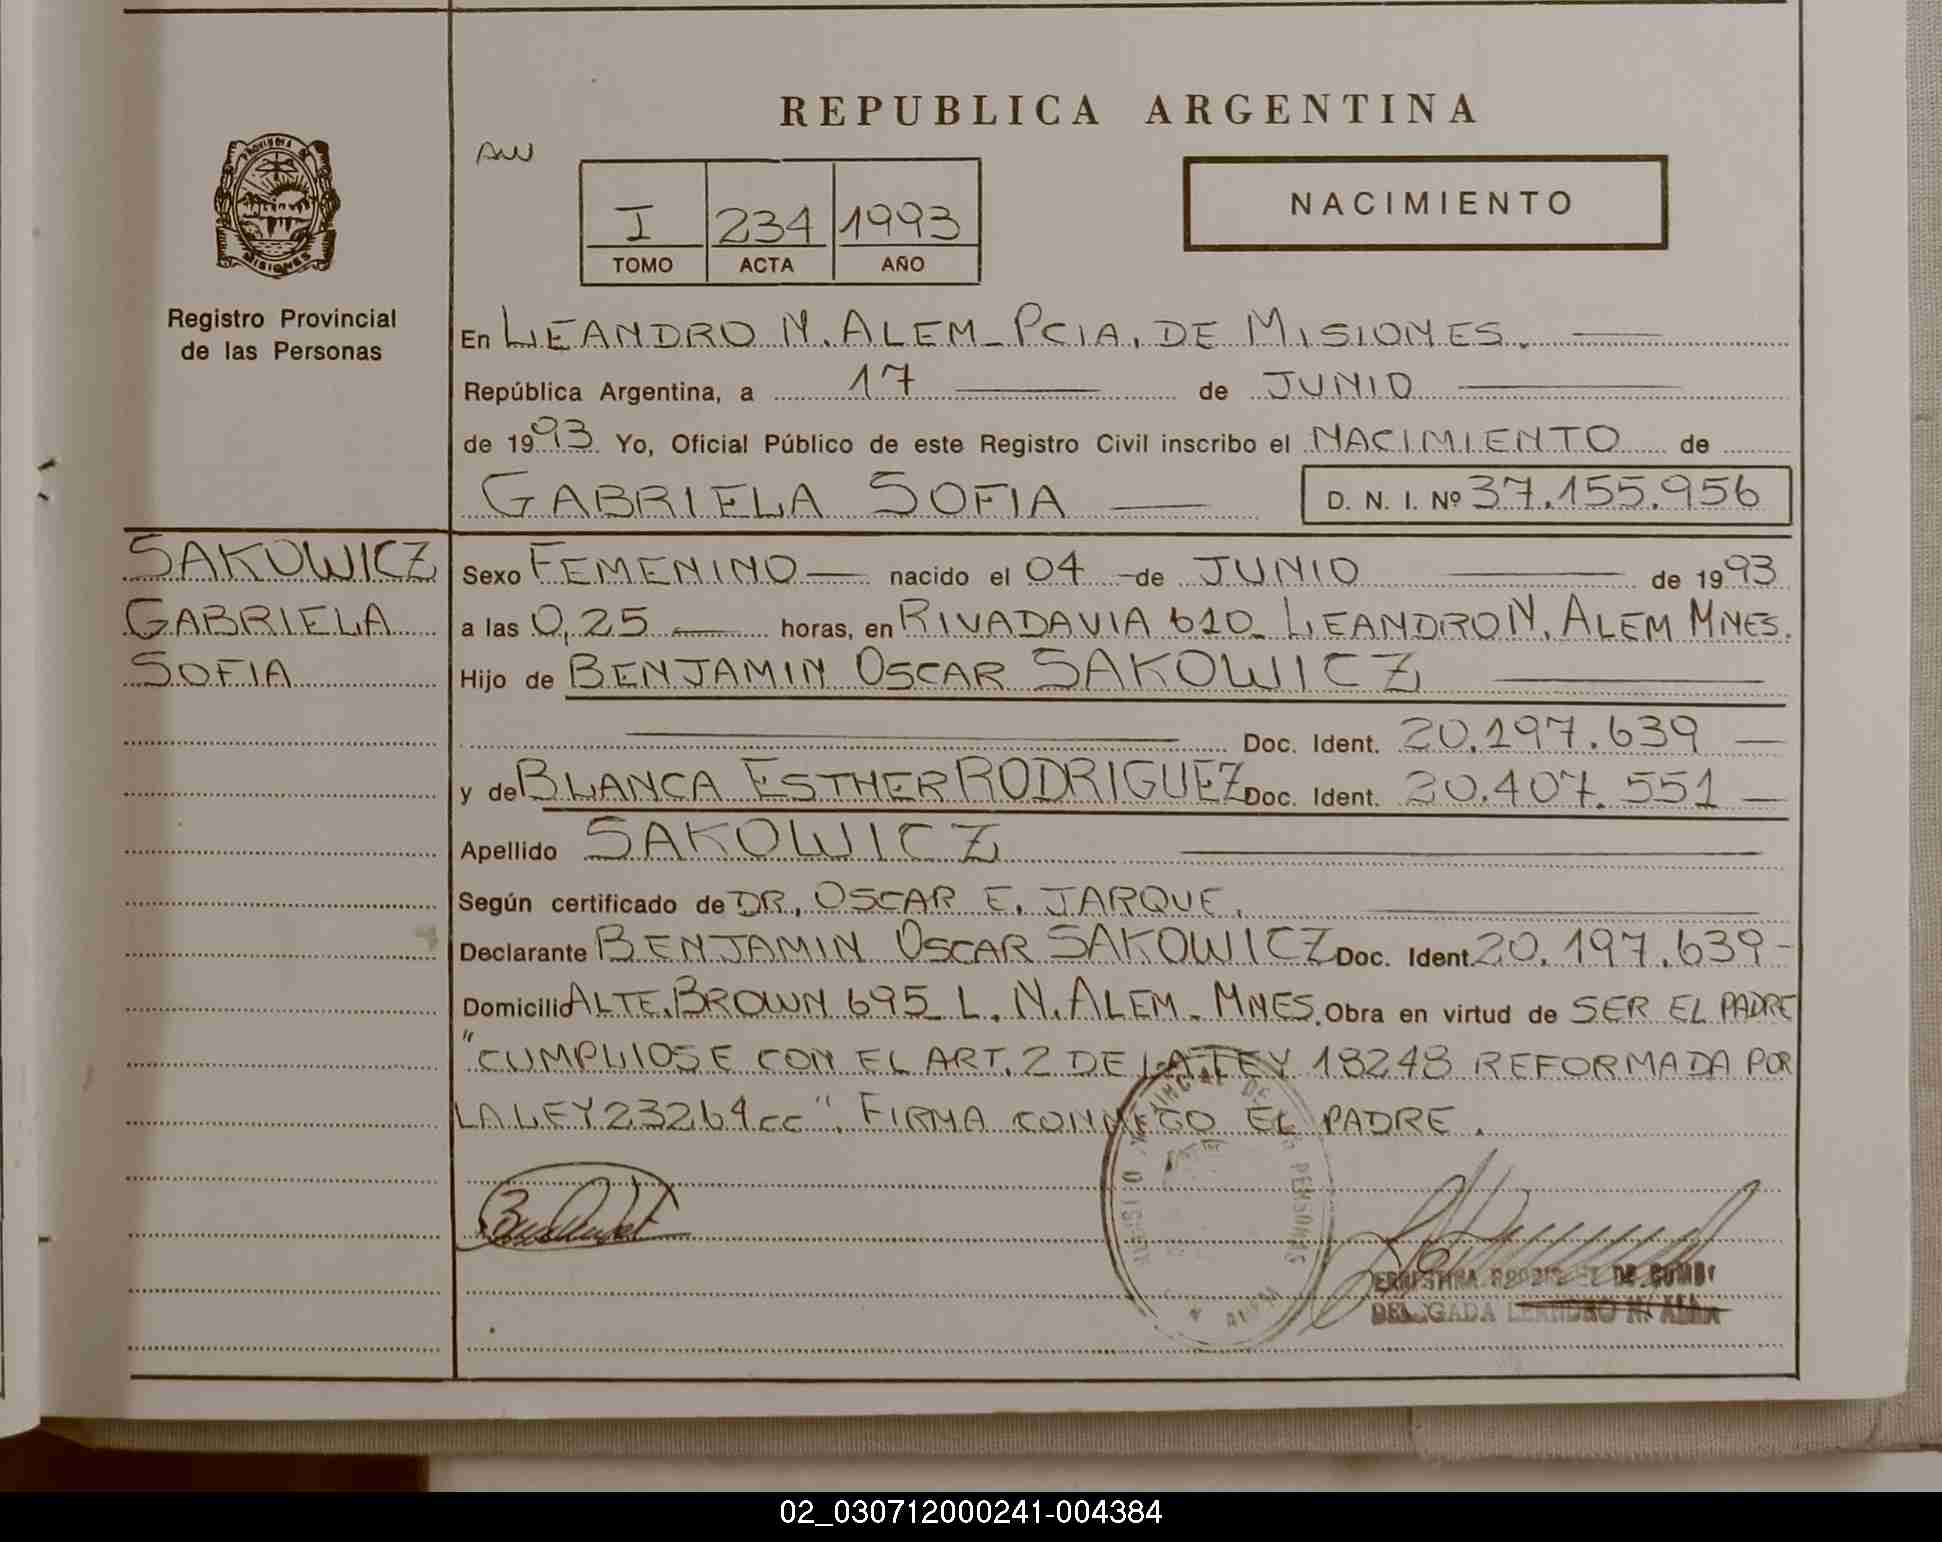 REPUBLICA ARGENTINA
AW
I 234 1993
TOMO ACTA AÑO
NACIMIENTO
PROVINCIA DE
MISIONES
Registro Provincial
de las Personas
En LEANDRO N. ALEM_PCIA. DE MISIONES.
República Argentina, a 17 de JUNIO
de 1993 Yo, Oficial Público de este Registro Civil inscribo el NACIMIENTO de
GABRIELA SOFIA
D. N. I. Nº 37.155.956
SAKOWICZ
GABRIELA
SOFIA
Sexo FEMENINO nacido el 04 de JUNIO de 1993
a las 0,25 horas, en RIVADAVIA 610_ LEANDRO N. ALEM MNES.
Hijo de BENJAMIN OSCAR SAKOWICZ
Doc. Ident. 20.197.639
y de BLANCA ESTHER RODRIGUEZ Doc. Ident. 20.407.551
Apellido SAKOWICZ
Según certificado de DR. OSCAR E. JARQUE.
Declarante BENJAMIN OSCAR SAKOWICZ Doc. Ident. 20.197.639-
Domicilio ALTE. BROWN 695_ L. N. ALEM_ MNES. Obra en virtud de SER EL PADRE
"CUMPLIOSE CON EL ART. 2 DE LA LEY 18248 REFORMADA POR
LA LEY 23264 cc". FIRMA CONMIGO EL PADRE.
DELEGADA LEANDRO N. ALEM
02_030712000241-004384